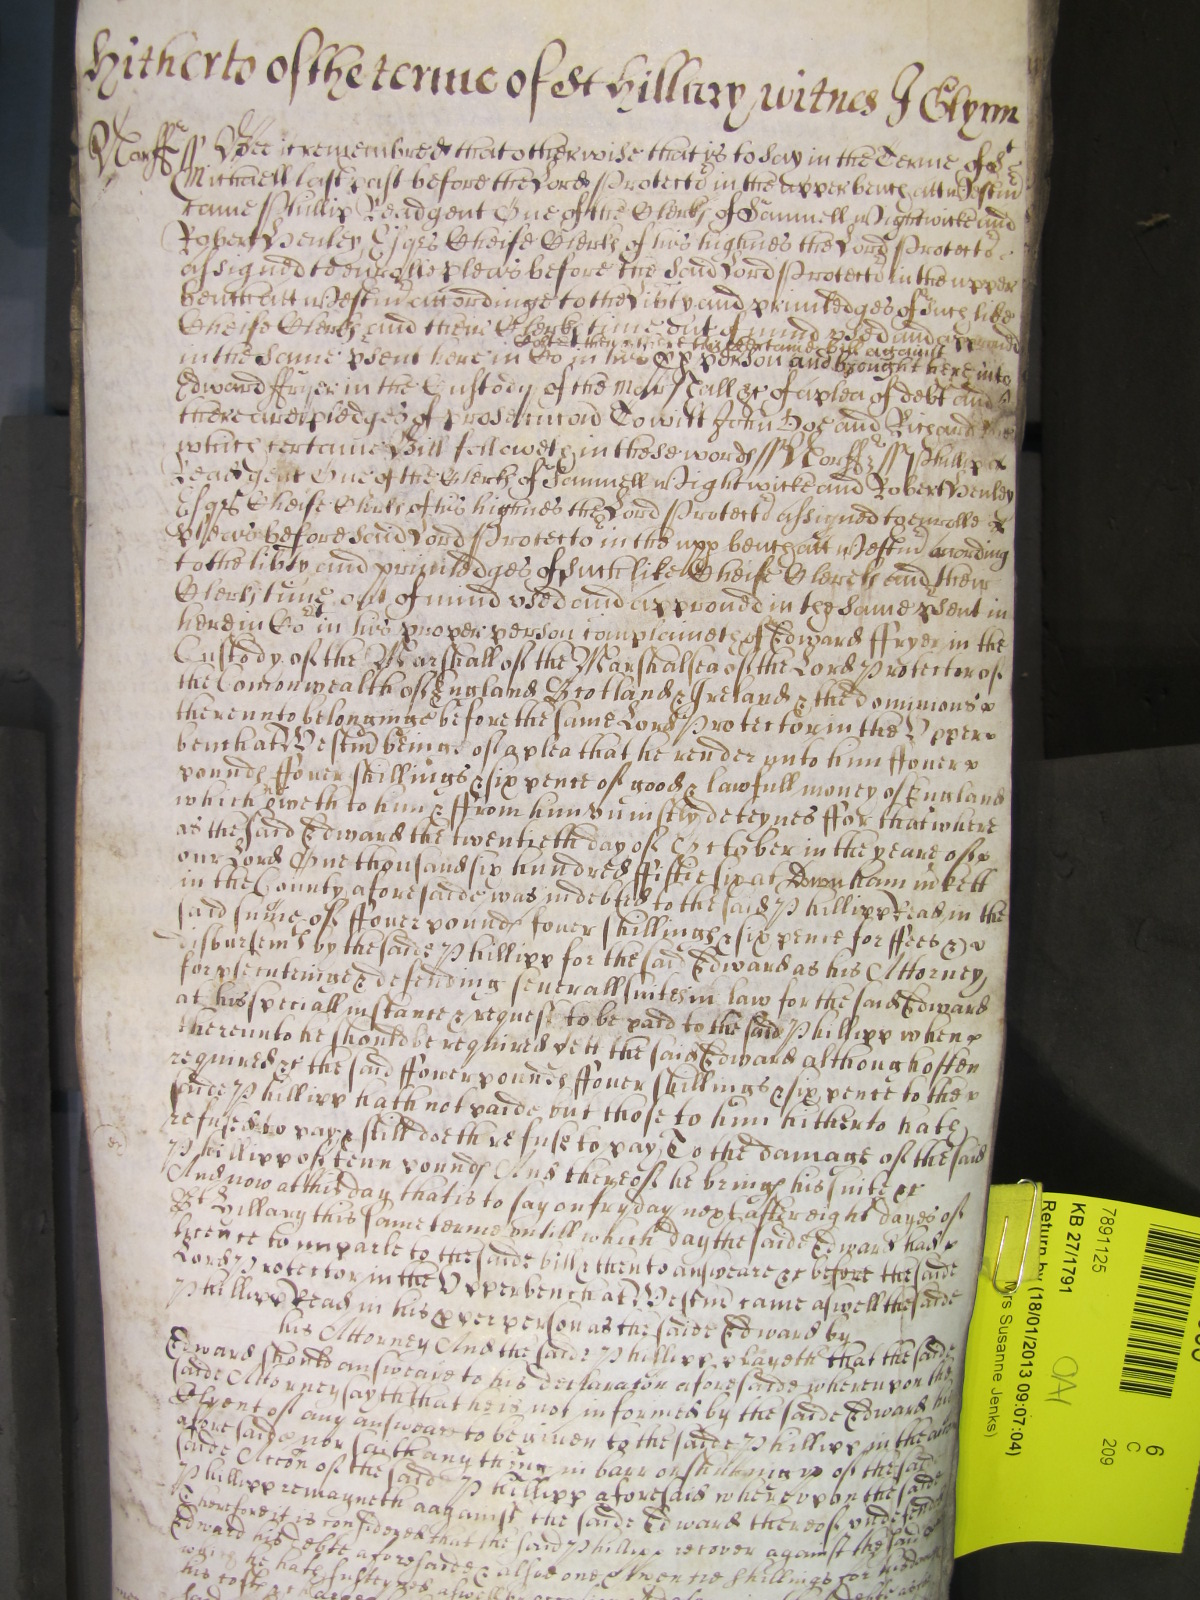 Hitherto of the terme of St Hillary witnes J Glynn
Norff ss Bee it remembred that otherwise that is to say in the Terme of St
Michaell last past before the Lord Protector in the upper bench att Westm
came Phillip Read gent One of the Clerks of Samuell Wightwicke and
Robert Henley Esqes Cheife Clerks of his highnes the Lord Protector
assigned to enrolle pleas before the said Lord Protector in the upper
bench att Westm accordinge to the libty and priuiledges of such like
Cheife Clerks and their Clerks time out of mind vsed and approued
in the same psent here in Co in his pp person and brought here into
Co then there his certaine bill against
Edward ffryer in the Custody of the Mar Plea of a plea of debt and
there are pledges of prosecution To witt John Doe and Richard Roe
which certaine Bill followeth in these words ss Norff ss Phillip
Read gent One of the Clerks of Samuell Wightwicke and Robert Henley
Esqes Cheife Clerks of his highnes the Lord Protector assigned to enrolle
Pleas before said Lord Protector in the upp bench att Westm according
to the libty and priuiledges of such like Cheife Clerks and their
Clerks time out of mind vsed and approued in the same psent in
here in Co in his proper person complaineth of Edward ffryer in the
Custody of the Marshall of the Marshalsea of the Lord Protector of
the Comonwealth of England Scotland & Ireland & the dominions
thereunto belonginge before the same Lord Protector in the Upper
bench at Westm beinge of a plea that he render unto him ffower
pounds ffower shillings & six pence of good & lawfull money of England
which he oweth to him & ffrom him uniustly deteynes ffor that where
as the said Edward the twentieth day of October in the yeare of
our Lord One thousand six hundred ffiftie six at Downham markett
in the County aforesaide was indebted to the said Phillipp Read in the
said sume of ffower pounds fower shillings & six pence for ffees &
disbursemts by the saide Phillipp for the said Edward as his Attorney
for psecutinge & defending seuerall suites in law for the said Edward
at his speciall instance & request to be paid to the said Phillipp when
thereunto he should be required yett the said Edward although often
required &c the said ffower pounds ffower shillings & six pence to the
saide Phillipp hath not paide but those to him hitherto hath
refused to pay & still doeth refuse to pay To the damage of the said
Phillipp of tenn pounds And thereof he brings his suite &c
And now at this day that is to say on fryday next after eight dayes of
St Hillary this same terme untill which day the saide Edward had
licence to imparle to the saide bill & then to answeare &c before the saide
Lord Protector in the Upper bench at Westm came aswell the saide
Phillipp Read in his pper person as the saide Edward by
his Attorney And the said Phillipp prayeth that the saide
Edward should answeare to his declaracon aforesaide whereupon the
saide Attorney sayth that he is not informed by the saide Edward his
Clyent of any answear to be giuen to the saide Phillipp in the accon
aforesaide nor saith any thing in barr or shutting up of the said
saide Accon of the said Phillipp aforesaid whereupon the saide
Phillipp remayneth against the saide Edward thereof undefended
Therefore it is considered that the said Phillipp recover against the said
Edward his debte aforesaide & alsoe one & twentie shillings for his damages
which he hath susteyned aswell by
his costs & charges
7891125
KB 27/1791
Return by (18/01/2013 09:07:04)
Mrs Susanne Jenks)
OA1
6
C
209